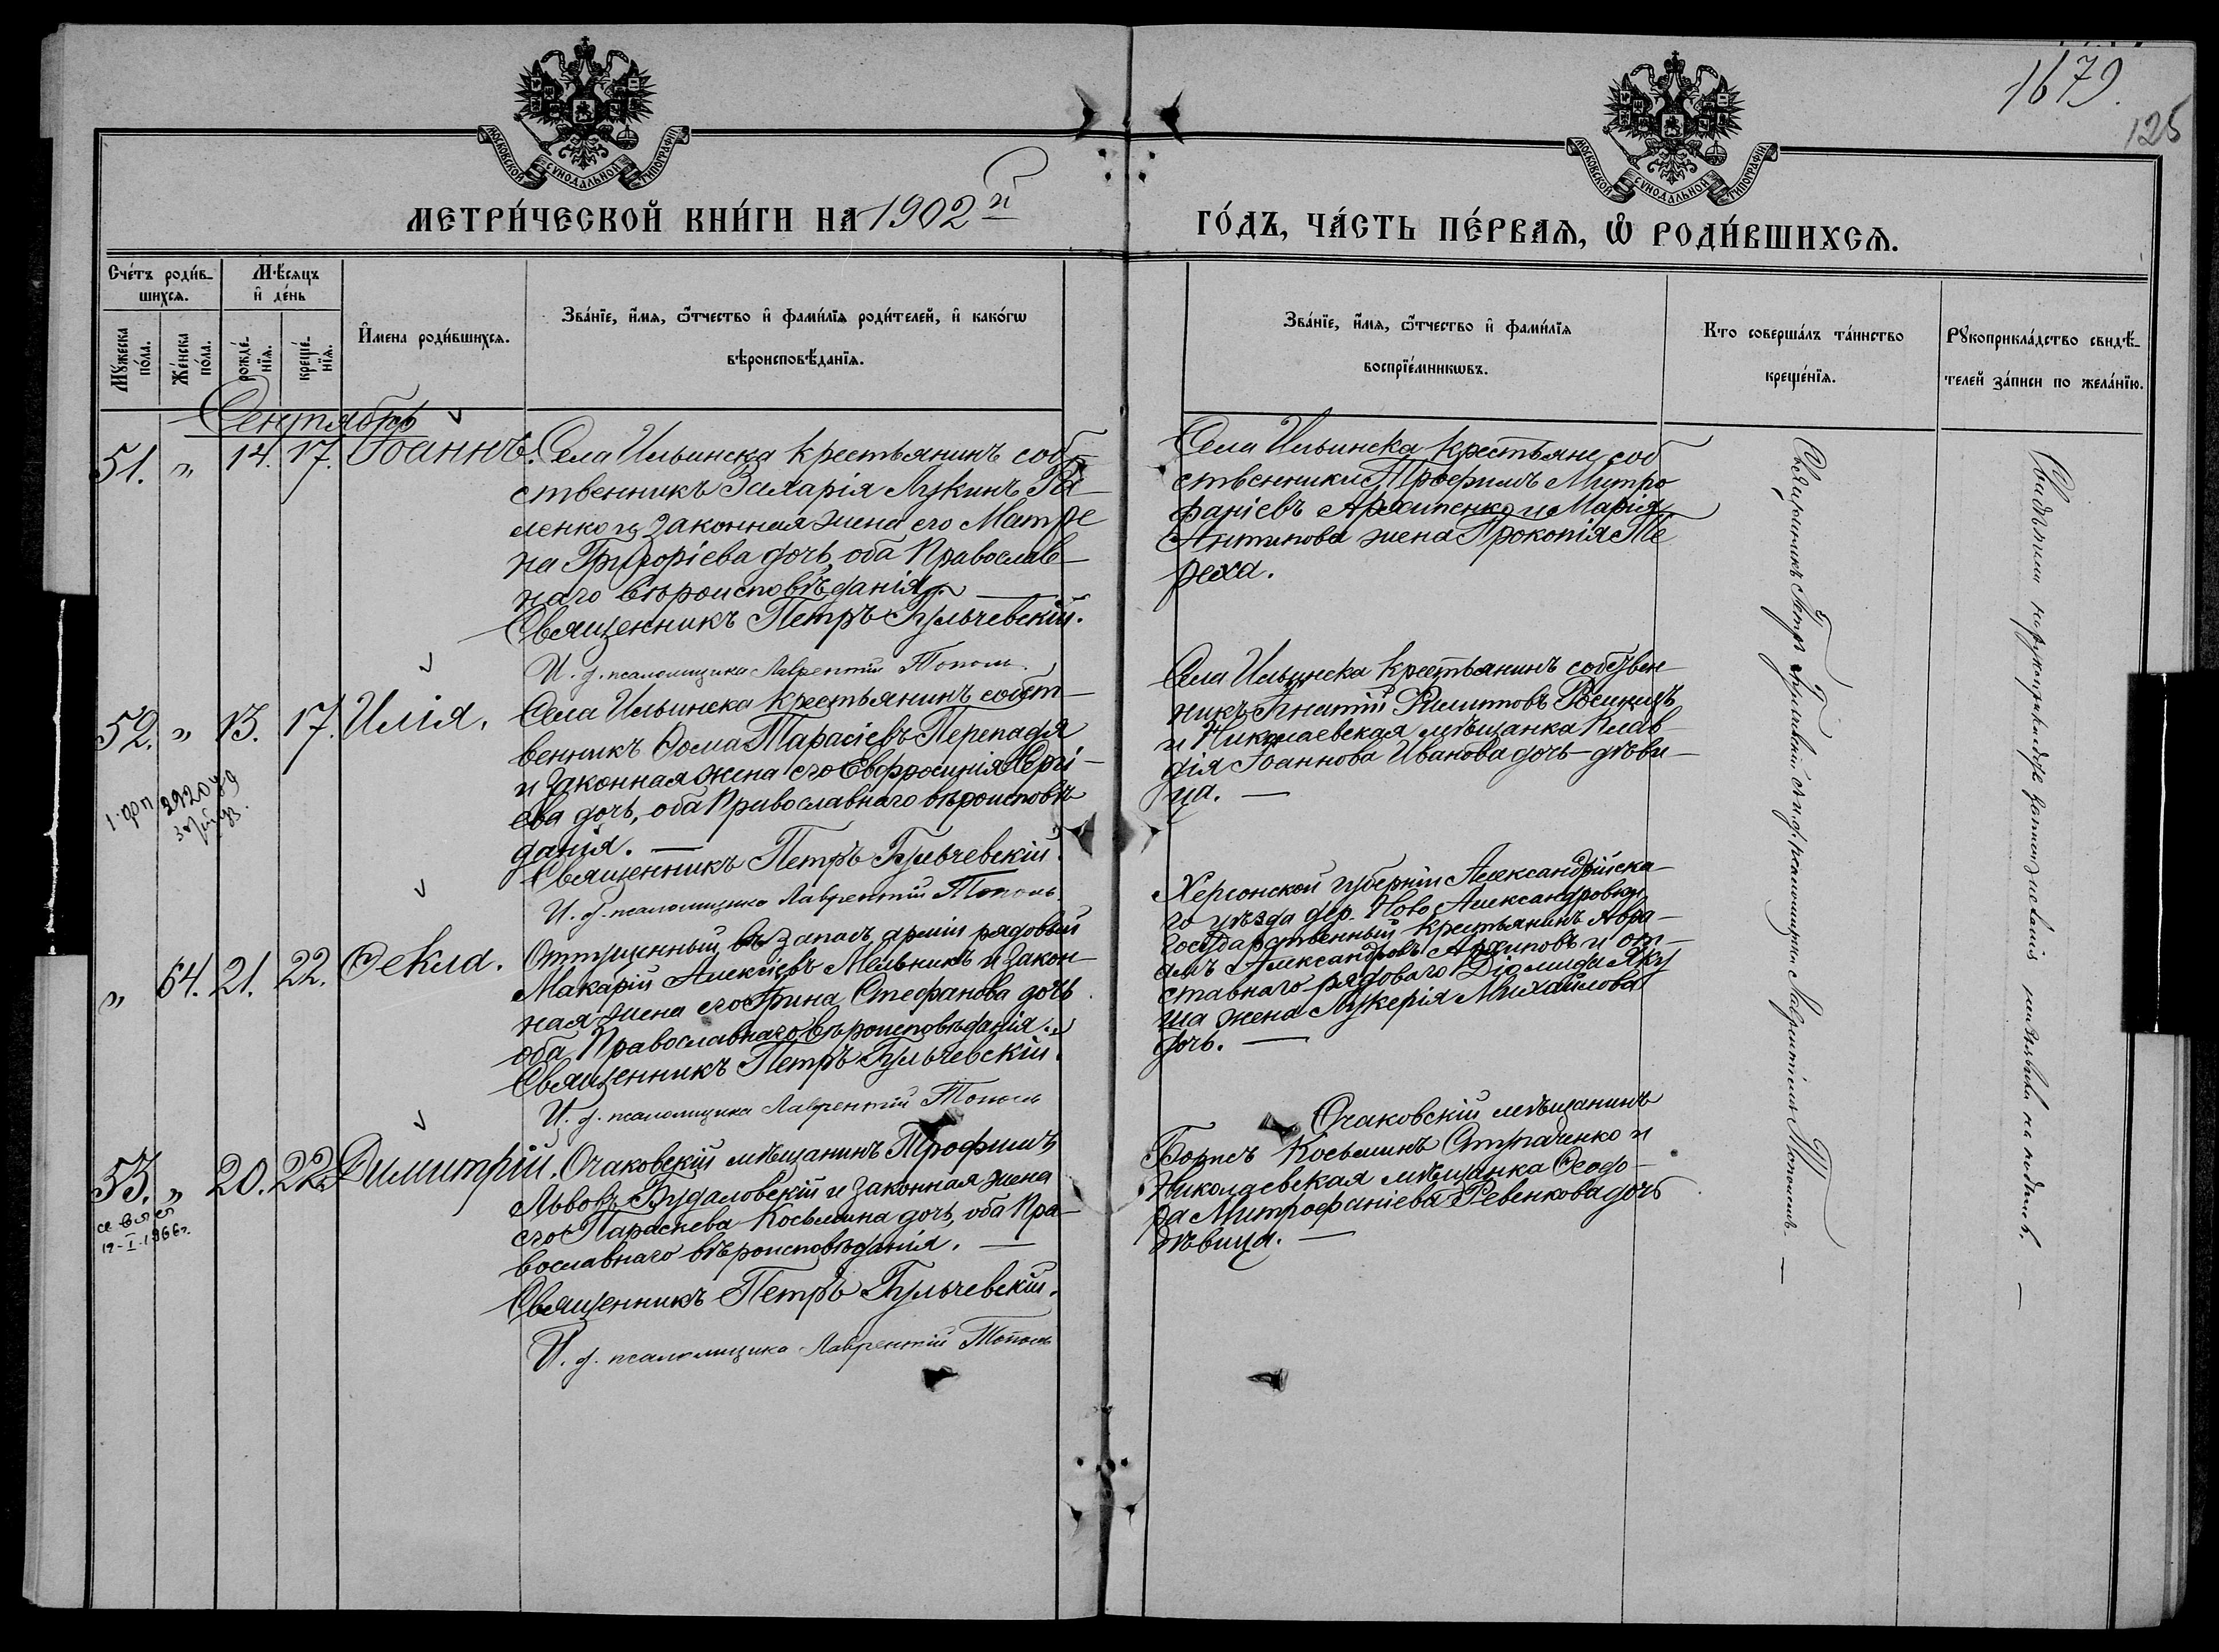 1679.
125
МОСКОВСКОЙ СѴНОДАЛЬНОЙ ТИПОГРАФІИ
МОСКОВСКОЙ СѴНОДАЛЬНОЙ ТИПОГРАФІИ
МЕТРИ́ЧЕСКОЙ КНИ́ГИ НА 1902й
ГО́ДЪ, ЧА́СТЬ ПЕ́РВАѦ, Ѡ РОДИ́ВШИХСѦ.
Сче́тъ роди́в-
шихсѧ.
Мꙋ́жеска по́ла.
Же́нска по́ла.
Мѣ́сѧцъ
и҆ де́нь
рожде́-
нїѧ.
креще́-
нїѧ.
И҆мена роди́вшихсѧ.
Зва́нїе, и҆́мѧ, ѻ҆́тчество и҆ фами́лїѧ роди́телей, и҆ како́гѡ
вѣроисповѣ́данїѧ.
Зва́нїе, и҆́мѧ, ѻ҆́тчество и҆ фами́лїѧ
воспрїе́мникѡвъ.
Кто соверша́лъ та́инство
креще́нїѧ.
Рꙋкоприкла́дство свидѣ́-
телей за́писи по жела́нїю.
Сентябрь
51. " 14. 17. Іоаннъ.
Села Ильинска крестьянинъ соб-
ственникъ Захарія Лукинъ Га-
ленко и законная жена его Матре
на Григоріева дочь, оба Православ-
наго вѣроисповѣданія. —
Священникъ Петръ Бульчевскій.
И. д. псаломщика Лаврентій Тополь.
Села Ильинска крестьяне соб
ственники Трофимъ Митро
фаніевъ Архипенко и Марія
Антипова жена Прокопія Те
реха.
52. " 13. 17. Илія.
1. доп
Села Ильинска крестьянинъ собст-
венникъ Ѳома Тарасіевъ Перепадя
и законная жена его Евфросинія Сергі-
ева дочь, оба Православнаго вѣроисповѣ
данія. —
Священникъ Петръ Бульчевскій.
И. д. псаломщика Лаврентій Тополь
Села Ильинска крестьянинъ собствен
никъ Игнатій Филиповъ
и Николаевская мѣщанка Клав-
дія Іоаннова Иванова дочь – дѣви-
ца. —
" 64. 21. 22. Ѳекла.
Отпущенный въ запасъ арміи рядовой
Макарій Алексіевъ Мельникъ и закон-
ная жена его Ирина Стефанова дочь
оба Православнаго вѣроисповѣданія.
Священникъ Петръ Бульчевскій.
И. д. псаломщика Лаврентій Тополь
Херсонской губерніи Александрійска-
го уѣзда дер. Ново Александровки
Государственный крестьянинъ Авра-
амъ Александровъ Архиповъ и от-
ставнаго рядоваго Діомида Яку
ша жена Лукерія Михайлова
дочь. —
53. " 20. 22. Димитрій.
19-I-1966г.
Очаковскій мѣщанинъ Трофимъ
Львовъ Будаловскій и законная жена
его Параскева Косьмина дочь, оба Пра-
вославнаго вѣроисповѣданія. —
Священникъ Петръ Бульчевскій.
И. д. псаломщика Лаврентій Тополь
Очаковскій мѣщанинъ
Борисъ Косьминъ Стригаченко и
Николаевская мѣщанка Ѳеодо-
ра Митрофаніева Ревенкова дочь
дѣвица. —
Священникъ Петръ Бульчевскій съ и. д. псаломщика Лаврентіемъ Тополемъ —